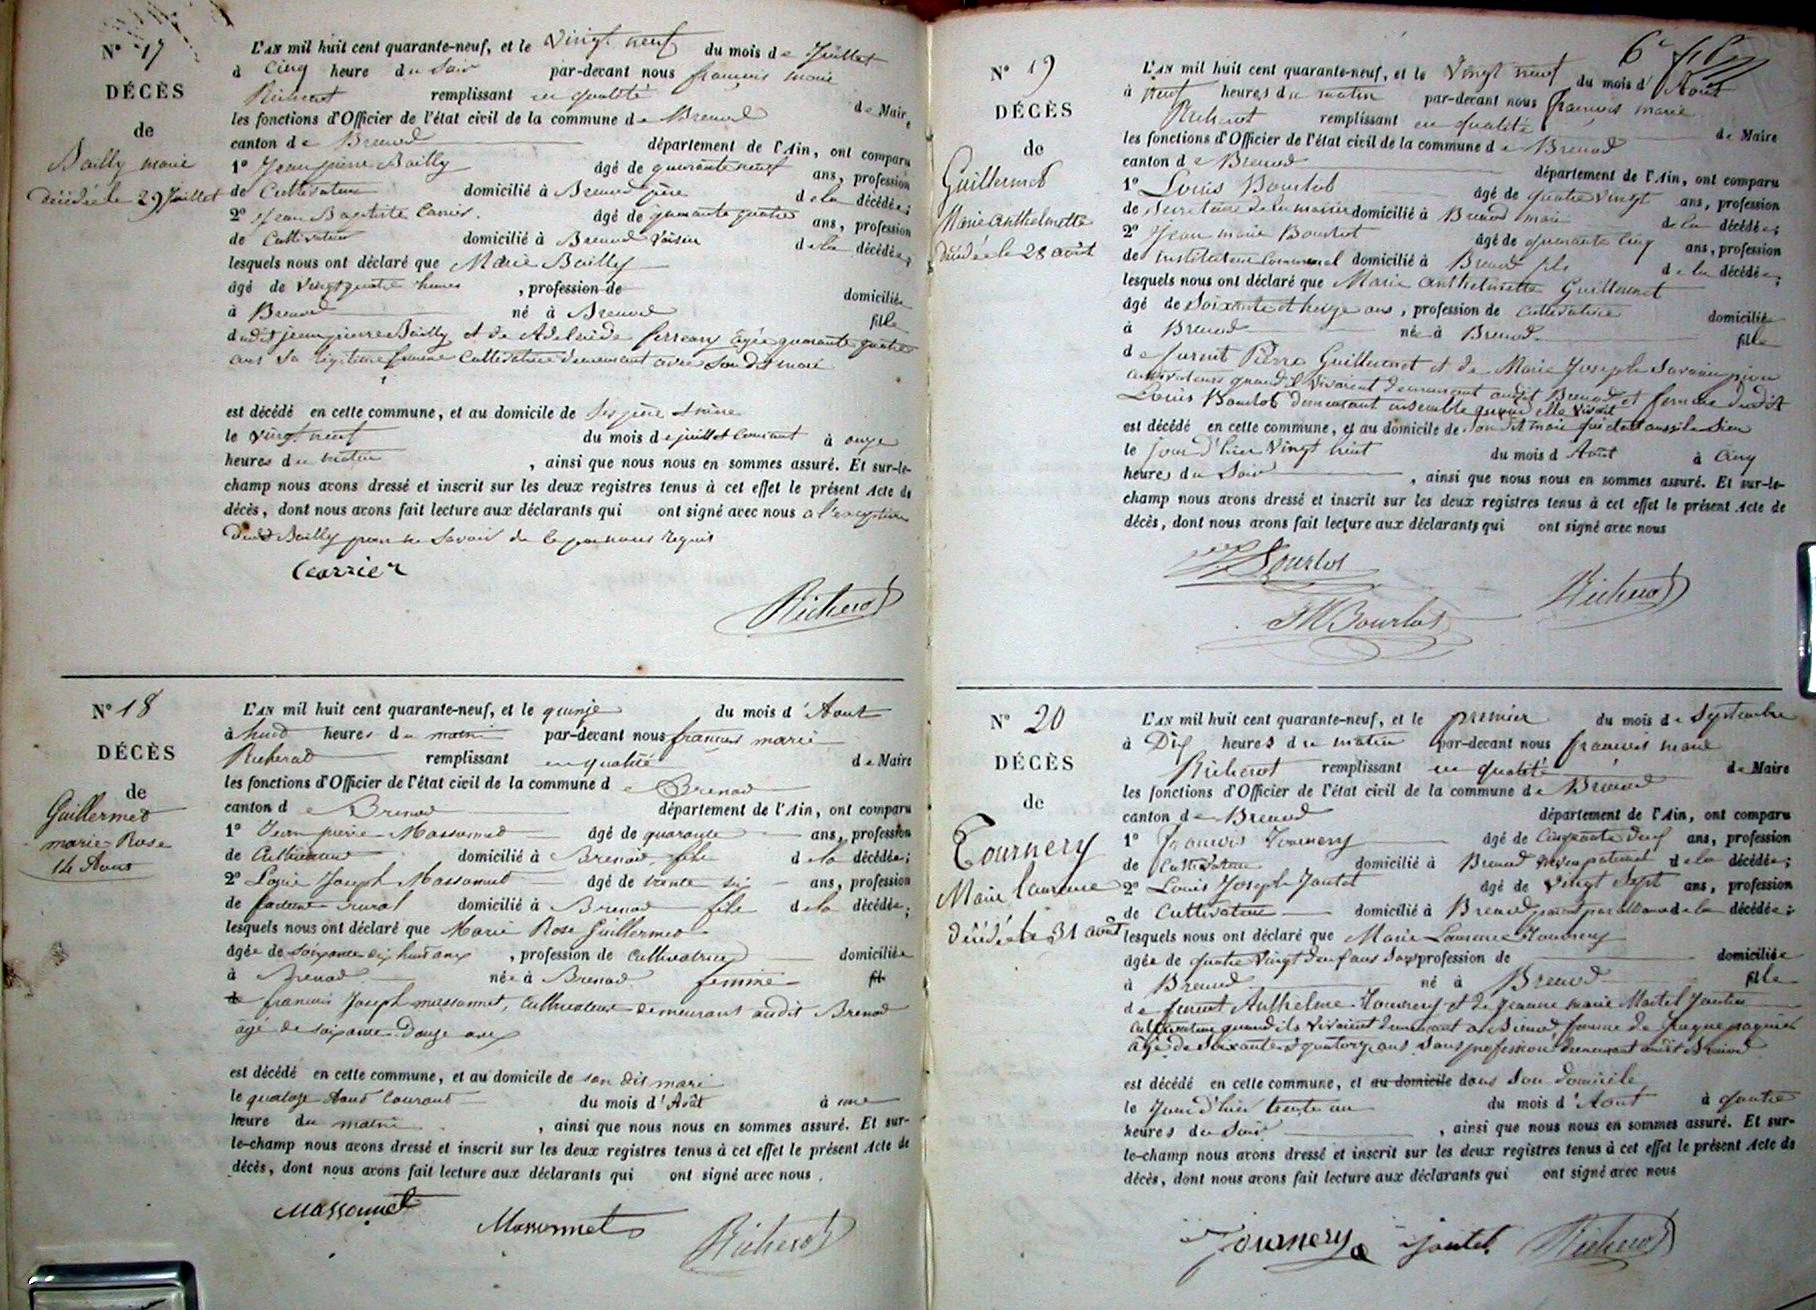 N° 17
DÉCÈS
de
Bailly marie
décédée le 29 Juillet
L'AN mil huit cent quarante-neuf, et le vingt neuf du mois de Juillet
à cinq heure du soir par-devant nous françois marie
Richerot remplissant en qualité de Maire
les fonctions d'Officier de l'état civil de la commune de Brenod
canton de Brenod département de l'Ain, ont comparu
1° Jean pierre Bailly âgé de quarante neuf ans, profession
de Cultivateur domicilié à Brenod père de la décédée;
2° Jean Baptiste Carrier. âgé de quarante quatre ans, profession
de Cultivateur domicilié à Brenod Voisin de la décédée;
lesquels nous ont déclaré que Marie Bailly
âgé de vingt quatre heures , profession de domiciliée
à Brenod né à Brenod fille
dudit jean pierre Bailly et de Adelaïde âgée quarante quatre
ans sa légitime femme Cultivatrice demeurant avec son dit mari
est décédé en cette commune, et au domicile de ses père & mère
le vingt neuf du mois de juillet courant à onze
heures du matin , ainsi que nous nous en sommes assuré. Et sur-le-
champ nous avons dressé et inscrit sur les deux registres tenus à cet effet le présent Acte de
décès, dont nous avons fait lecture aux déclarants qui ont signé avec nous a l'exception
dudit Bailly pour ne savoir de ce par nous requis
Carrier
Richerot
N° 18
DÉCÈS
de
Guillermet
marie Rose
14 Aout
L'AN mil huit cent quarante-neuf, et le quinze du mois d'Aout
à huit heures du matin par-devant nous françois marie
Richerot remplissant en qualité de Maire
les fonctions d'Officier de l'état civil de la commune de Brenod
canton de Brenod département de l'Ain, ont comparu
1° Jean pierre Massonnet âgé de quarante ans, profession
de Cultivateur domicilié à Brenod fils de la décédée;
2° Louis Joseph Massonnet âgé de trente six ans, profession
de facteur rural domicilié à Brenod fils de la décédée;
lesquels nous ont déclaré que Marie Rose Guillermet
âgée de soixante dix huit ans , profession de Cultivatrice domiciliée
à Brenod née à Brenod femme fil
de francois Joseph massonnet, Cultivateur demeurant audit Brenod
âgé de soixante Douze ans
est décédé en cette commune, et au domicile de son dit mari
le quatorze Aout Courant du mois d'Août à une
heure du matin , ainsi que nous nous en sommes assuré. Et sur-
le-champ nous avons dressé et inscrit sur les deux registres tenus à cet effet le présent Acte de
décès, dont nous avons fait lecture aux déclarants qui ont signé avec nous .
Massonnet
Massonnet
Richerot
6e
N° 19
DÉCÈS
de
Guillermet
Marie anthelmette
décédée le 28 août
L'AN mil huit cent quarante-neuf, et le vingt neuf du mois d'Août
à neuf heures du matin par-devant nous françois marie
Richerot remplissant en qualité de Maire
les fonctions d'Officier de l'état civil de la commune de Brenod
canton de Brenod département de l'Ain, ont comparu
1° Louis Bourlot âgé de quatre vingt ans, profession
de Secrétaire de la mairie domicilié à Brenod mari de la décédée;
2° Jean marie Bourlot âgé de quarante cinq ans, profession
de instituteur Communal domicilié à Brenod fils de la décédée;
lesquels nous ont déclaré que Marie anthelmette Guillermet
âgé de soixante et treize ans , profession de cultivatrice domiciliée
à Brenod née à Brenod fille
de furent Pierre Guillermet et de Marie Josephe Savarin pion
cultivateurs quand ils vivaient demeurant audit Brenod et femme dudit
Louis Bourlot demeurant ensemble quand elle vivait
est décédé en cette commune, et au domicile de son dit mari qui était aussi le sien
le jour d'hier vingt huit du mois d'Août à cinq
heures du soir , ainsi que nous nous en sommes assuré. Et sur-le-
champ nous avons dressé et inscrit sur les deux registres tenus à cet effet le présent Acte de
décès, dont nous avons fait lecture aux déclarants qui ont signé avec nous
Bourlot
JM Bourlot
Richerot
N° 20
DÉCÈS
de
Tournery
Marie Laurence
décédée le 31 août
L'AN mil huit cent quarante-neuf, et le premier du mois de Septembre
à Dix heures du matin par-devant nous françois marie
Richerot remplissant en qualité de Maire
les fonctions d'Officier de l'état civil de la commune de Brenod
canton de Brenod département de l'Ain, ont comparu
1° François Tournery âgé de cinquante deux ans, profession
de Cultivateur domicilié à Brenod neveu paternel de la décédée;
2° Louis Joseph Jantet âgé de vingt sept ans, profession
de Cultivateur domicilié à Brenod parent par alliance de la décédée;
lesquels nous ont déclaré que Marie Laurence Tournery
âgée de quatre vingt deux ans sans profession de domiciliée
à Brenod né à Brenod fille
de furent Anthelme Tournery et de Jeanne marie Martel Jantin
Cultivateurs quand ils vivaient demeurant a Brenod femme de
âgé de soixante & quatorze ans sans profession demeurant audit Brenod
est décédé en cette commune, et au domicile dans son domicile
le jour d'hier trente un du mois d'Aout à quatre
heures du soir , ainsi que nous nous en sommes assuré. Et sur-
le-champ nous avons dressé et inscrit sur les deux registres tenus à cet effet le présent Acte de
décès, dont nous avons fait lecture aux déclarants qui ont signé avec nous
Tournery Jantet Richerot